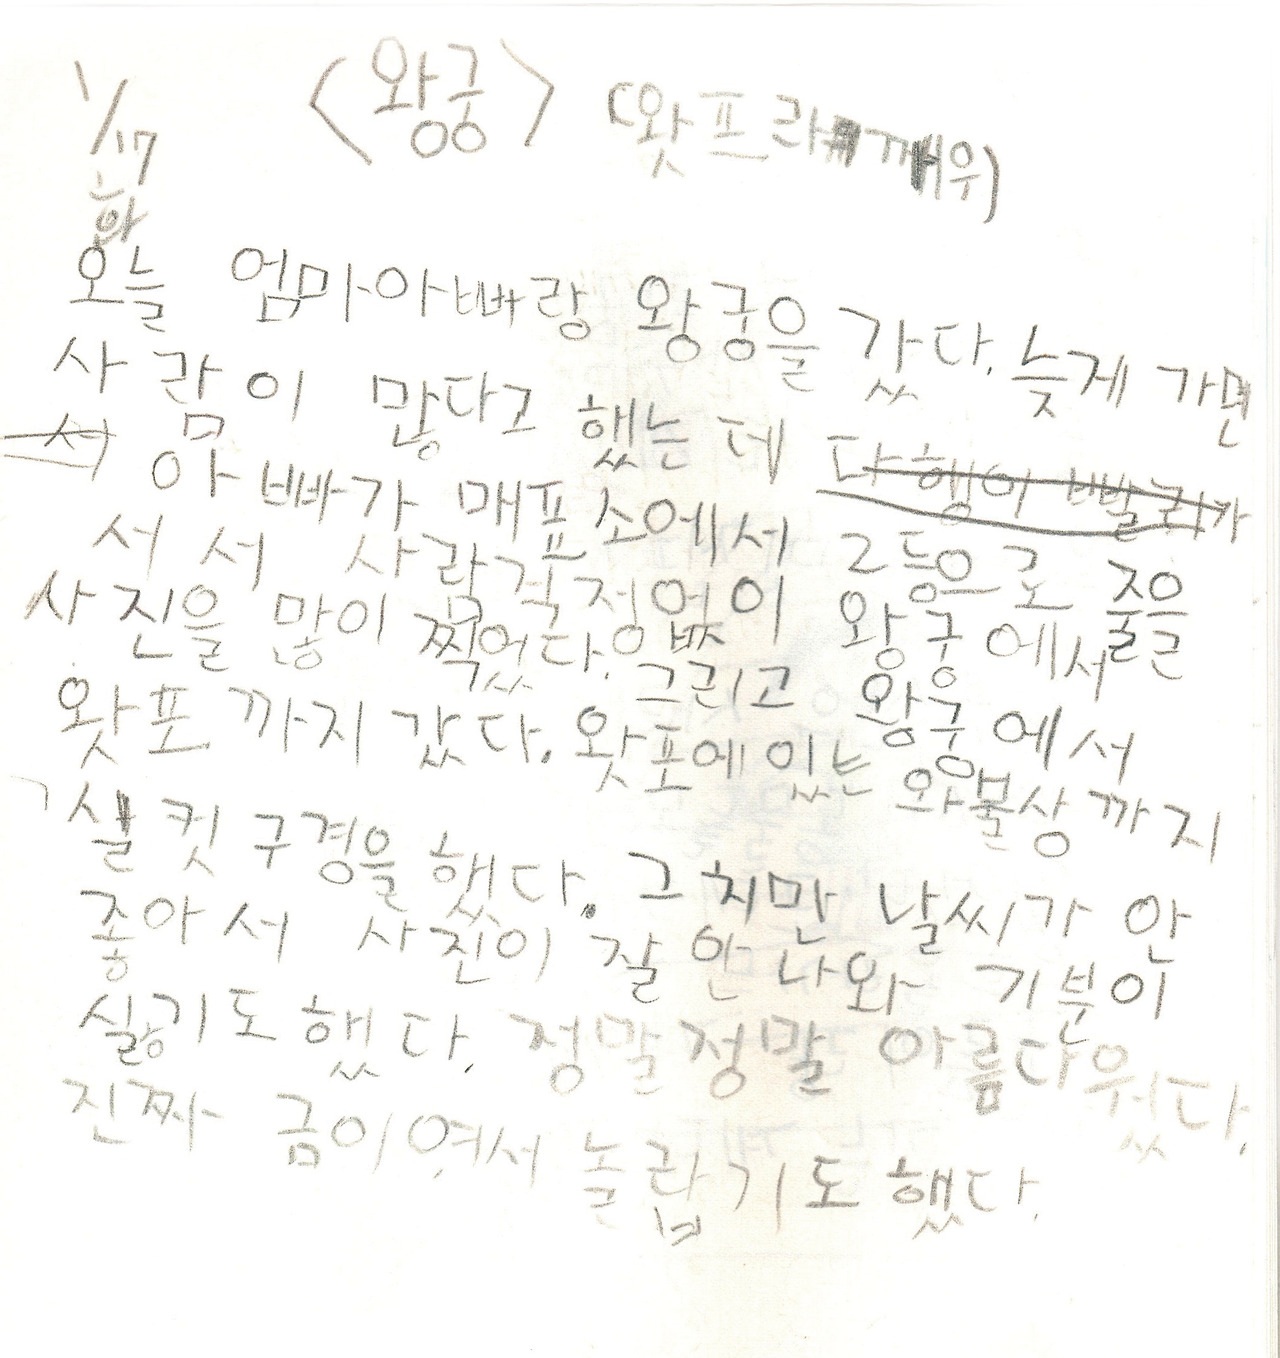 1/17 <왕궁> (왓프라깨우)
화
오늘 엄마아빠랑 왕궁을 갔다. 늦게 가면
사람이 많다고 했는데 다행이 빨리가
서 아빠가 매표소에서 2등으로 줄을
서서 사람걱정없이 왕궁에서
사진을 많이 찍었다. 그리고 왕궁에서
왓포까지 갔다. 왓포에 있는 와불상까지
실컷 구경을 했다. 그치만 날씨가 안
좋아서 사진이 잘 안나와 기분이
싫기도 했다. 정말정말 아름다웠다.
진짜 금이여서 놀랍기도 했다.